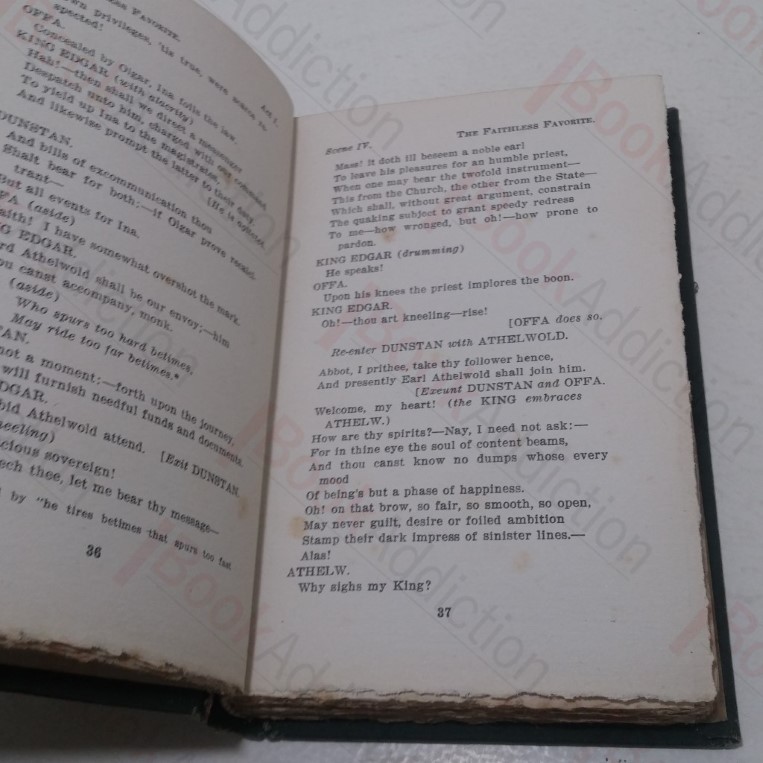 THE FAITHLESS FAVORITE.
own privileges, 'tis true, were scarce re-
spected!
Act I.
OFFA.
Concealed by Olgar, Ina foils the law.
KING EDGAR (with alacrity)
Hah!—then shall we direct a messenger
Despatch unto him, charged with our command
To yield up Ina to the magistrates
And likewise prompt the latter to their duty.
[He is
DUNSTAN.
And bills of excommunication thou
Shalt bear for both:—if Olgar prove recalci-
trant—
But all events for Ina.
OFFA (aside)
faith! I have somewhat overshot the mark.
KING EDGAR.
Lord Athelwold shall be our envoy;—him
ou canst accompany, monk.
(aside)
Who spurs too hard betimes,
May ride too far betimes.*
AN.
not a moment:—forth upon the journey,
will furnish needful funds and documents.
DGAR.
bid Athelwold attend. [Exit DUNSTAN.
neeling)
acious sovereign!
eech thee, let me bear thy message—
d by "he tires betimes that spurs too fast
36
Scene IV.
THE FAITHLESS FAVORITE.
Mass! it doth ill beseem a noble earl
To leave his pleasures for an humble priest,
When one may bear the twofold instrument—
This from the Church, the other from the State—
Which shall, without great argument, constrain
The quaking subject to grant speedy redress
To me—how wronged, but oh!—how prone to
pardon.
KING EDGAR (drumming)
He speaks!
OFFA.
Upon his knees the priest implores the boon.
KING EDGAR.
Oh!—thou art kneeling—rise!
[OFFA does so.
Re-enter DUNSTAN with ATHELWOLD.
Abbot, I prithee, take thy follower hence,
And presently Earl Athelwold shall join him.
[Exeunt DUNSTAN and OFFA.
Welcome, my heart! (the KING embraces
ATHELW.)
How are thy spirits?—Nay, I need not ask:—
For in thine eye the soul of content beams,
And thou canst know no dumps whose every
mood
Of being's but a phase of happiness.
Oh! on that brow, so fair, so smooth, so open,
May never guilt, desire or foiled ambition
Stamp their dark impress of sinister lines.—
Alas!
ATHELW.
Why sighs my King?
37
BookAddiction